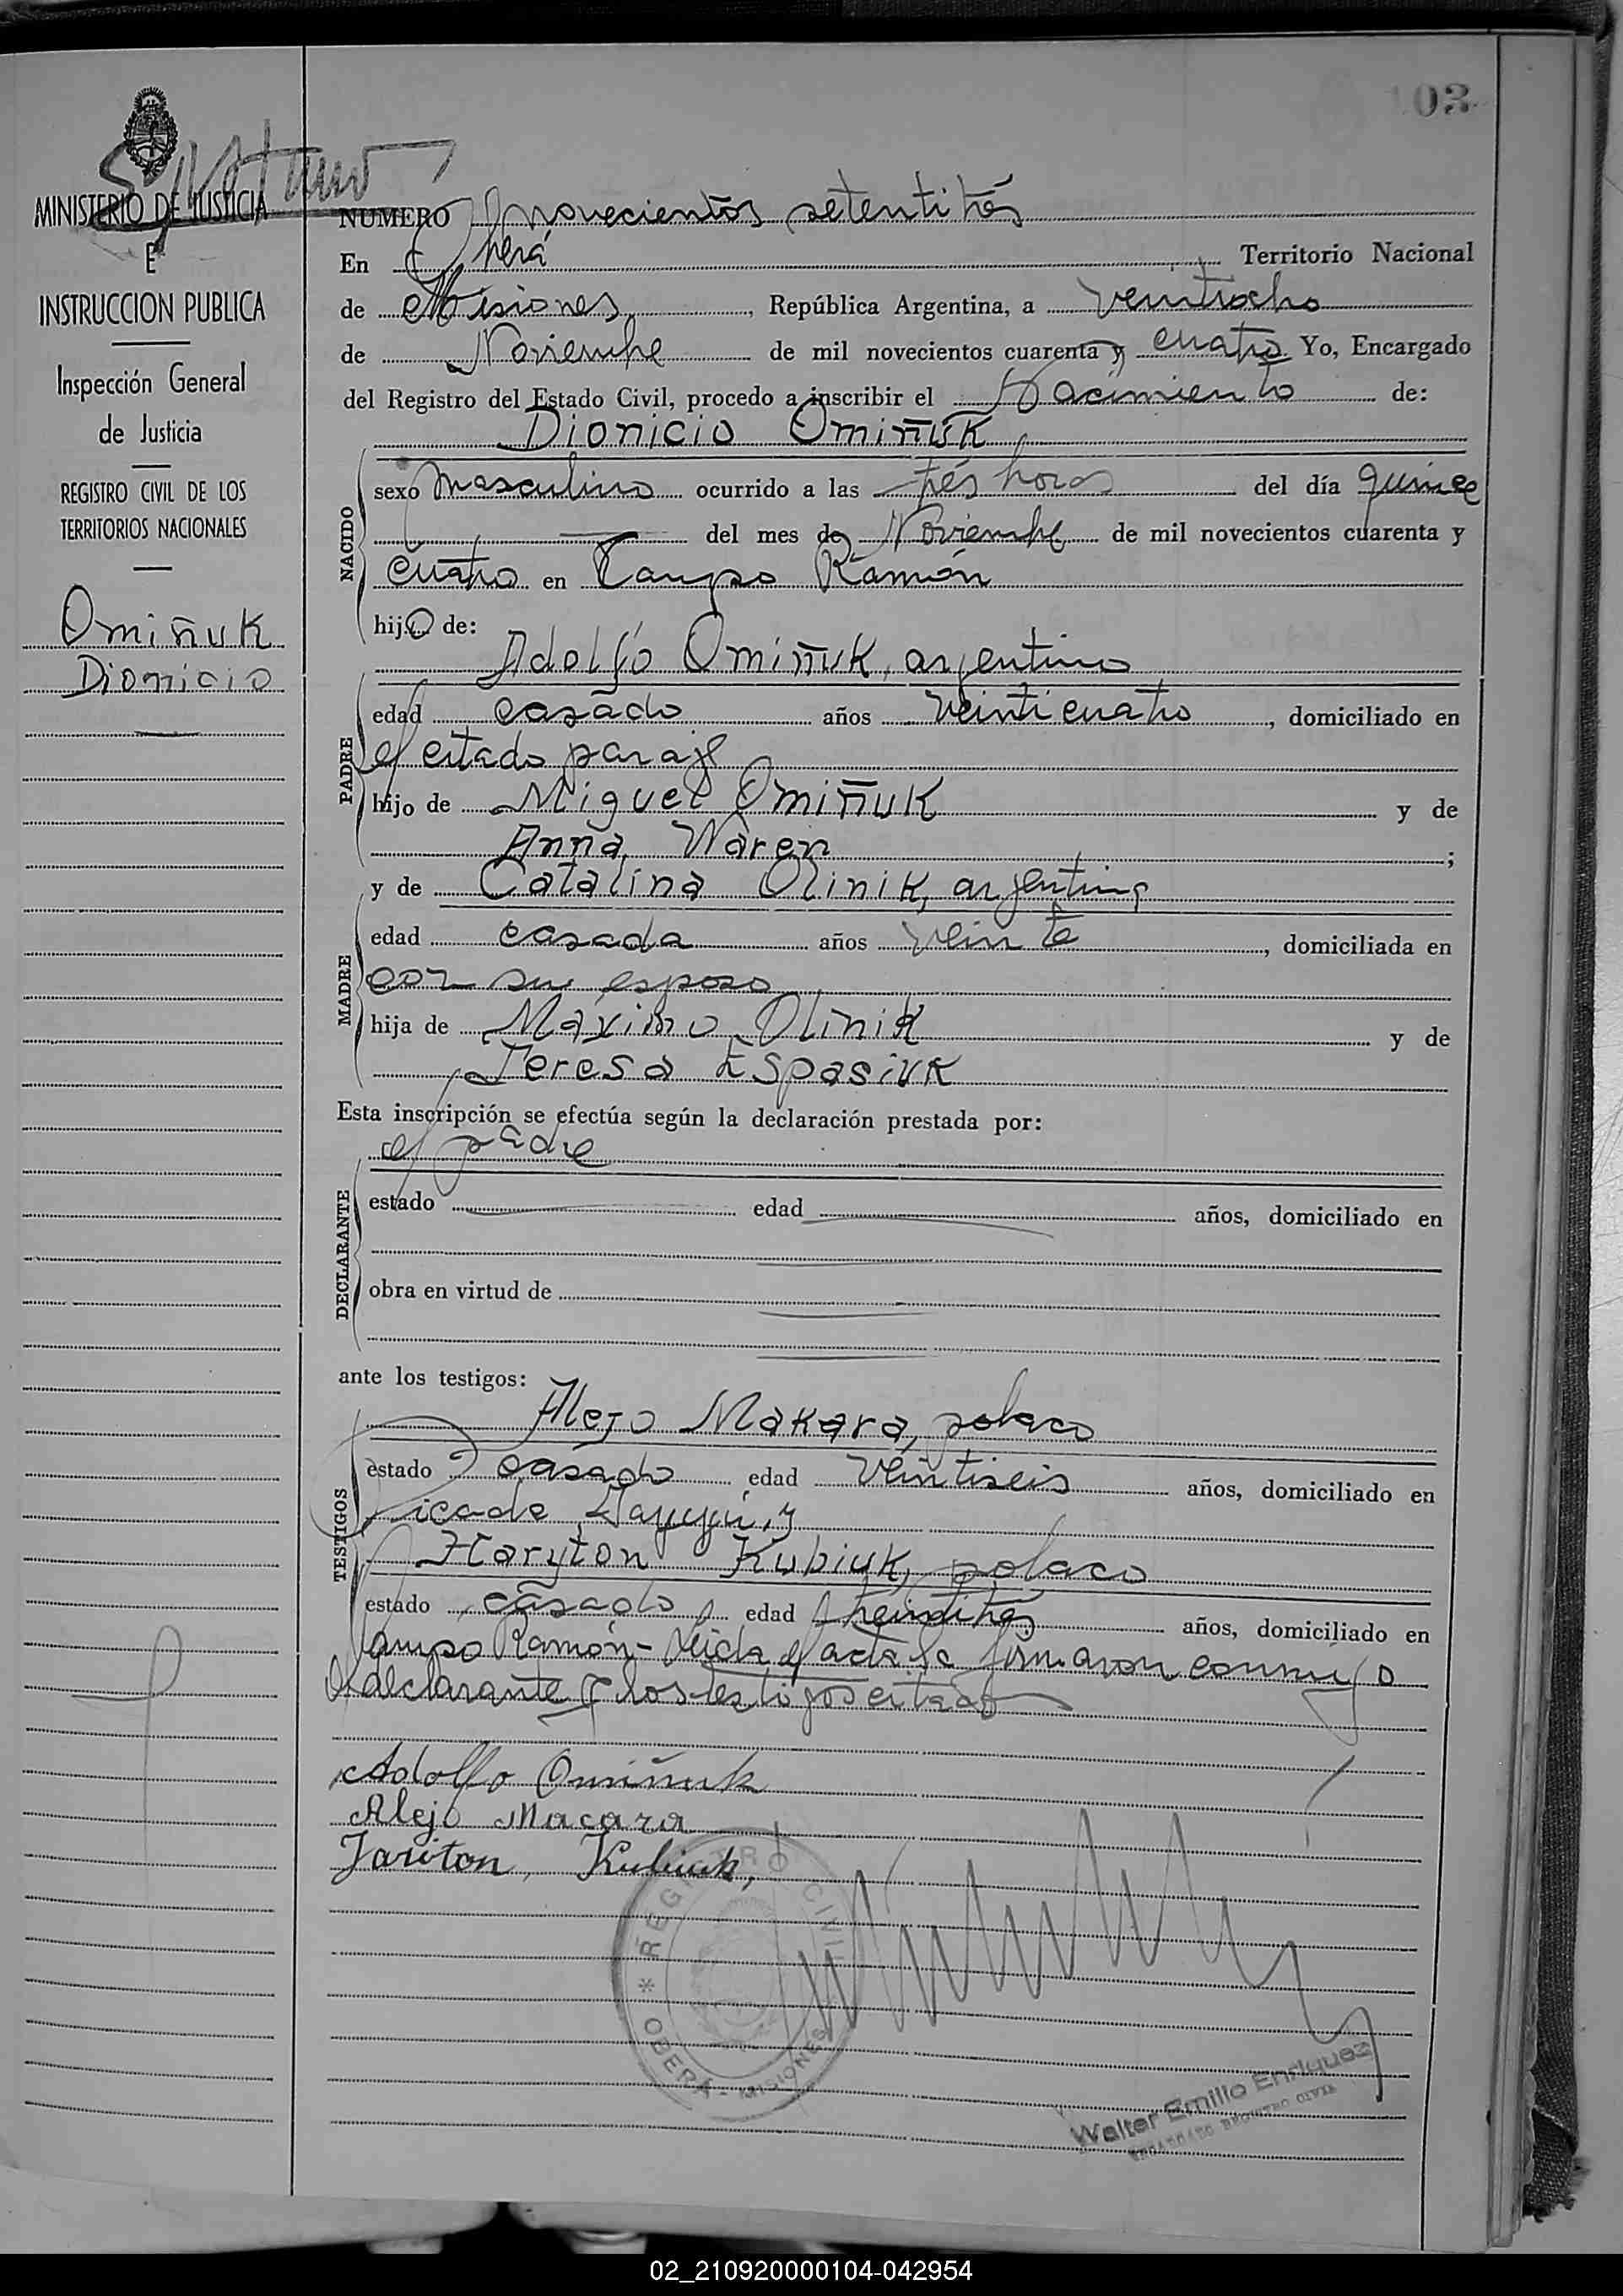 103
MINISTERIO DE JUSTICIA
E
INSTRUCCION PUBLICA
Inspección General
de Justicia
REGISTRO CIVIL DE LOS
TERRITORIOS NACIONALES
Omiñuk
Dionicio
NUMERO novecientos setentitrés
En Oberá Territorio Nacional
de Misiones, República Argentina, a veintiocho
de Noviembre de mil novecientos cuarenta y cuatro Yo, Encargado
del Registro del Estado Civil, procedo a inscribir el Nacimiento de:
Dionicio Omiñuk
NACIDO
sexo masculino ocurrido a las trés horas del día quince
del mes de Noviembre de mil novecientos cuarenta y
cuatro en Campo Ramón
hijo de:
Adolfo Omiñuk, argentino
PADRE
edad casado años veinticuatro, domiciliado en
el citado paraje
hijo de Miguel Omiñuk y de
Anna Waren;
y de Catalina Olinik, argentina
MADRE
edad casada años veinte, domiciliada en
con su esposo
hija de Maximo Olinik y de
Teresa Espasiuk
Esta inscripción se efectúa según la declaración prestada por:
el padre
DECLARANTE
estado edad años, domiciliado en
obra en virtud de
ante los testigos:
Alejo Makara, polaco
TESTIGOS
estado casado edad veintiseis años, domiciliado en
Picada y
Haryton Kubiuk, polaco
estado casado edad años, domiciliado en
Campo Ramón- Leída el acta la firmaron conmigo
el declarante y los testigos citados
Adolfo Omiñuk
Alejo Macara
Jariton, Kubiuk,
REGISTRO CIVIL
* OBERA - MISIONES
Walter Emilio Enriquez
ENCARGADO REGISTRO CIVIL
02_210920000104-042954